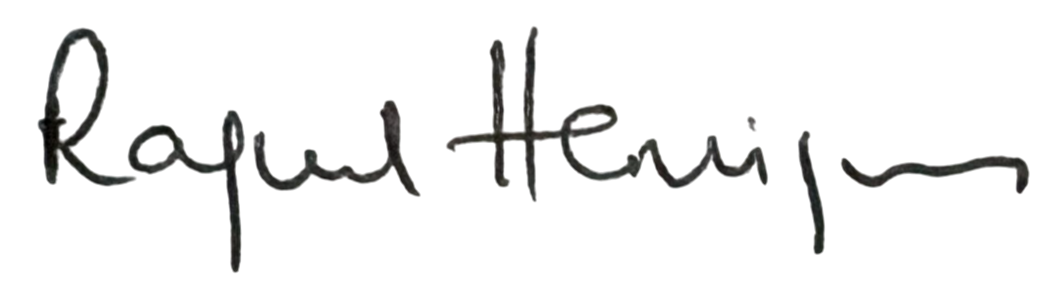 Raquel Henriques